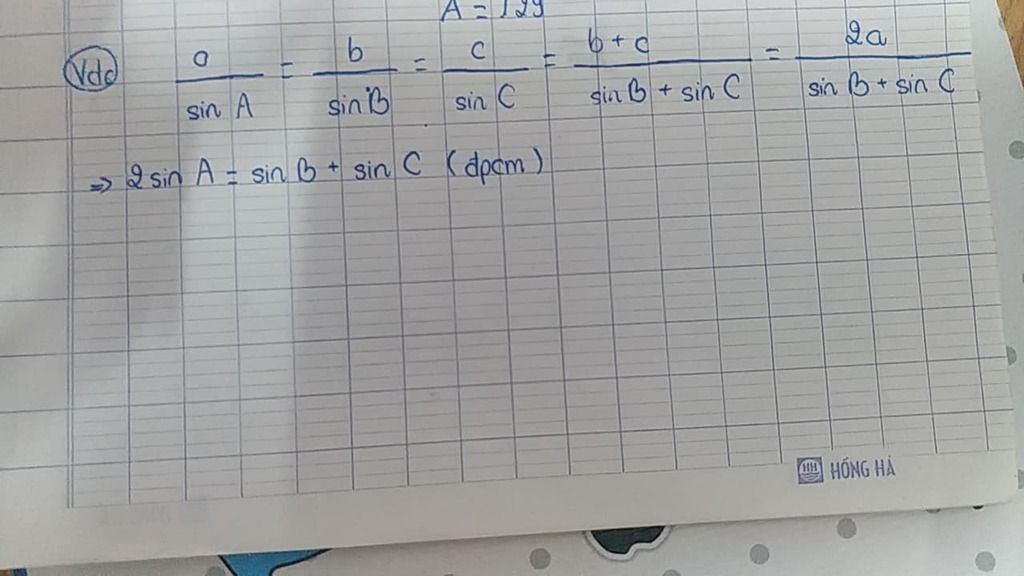 A = 129
Vdd a/sin A = b/sin B = c/sin C = b + c/sin B + sin C = 2a/sin B + sin C
=> 2 sin A = sin B + sin C (dpcm)
HH HỒNG HÀ